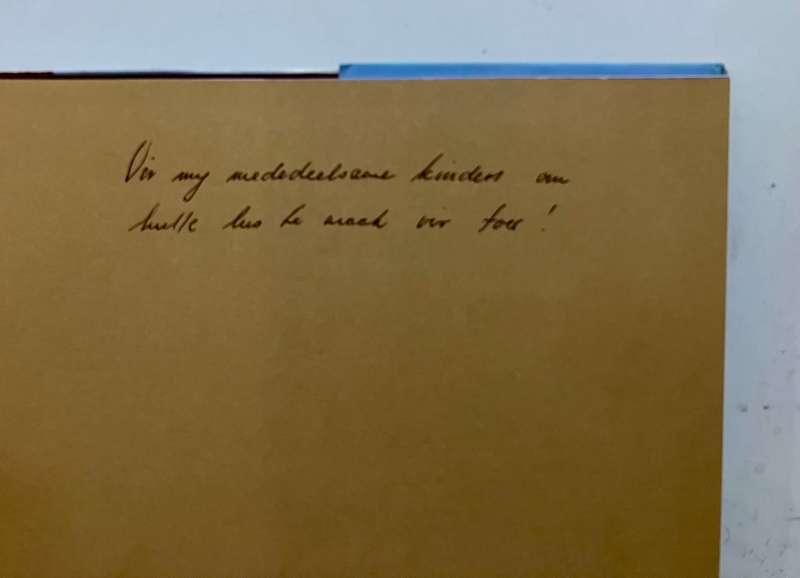 Vir my mededeelsame kinders om
hulle lus te maak vir toer!